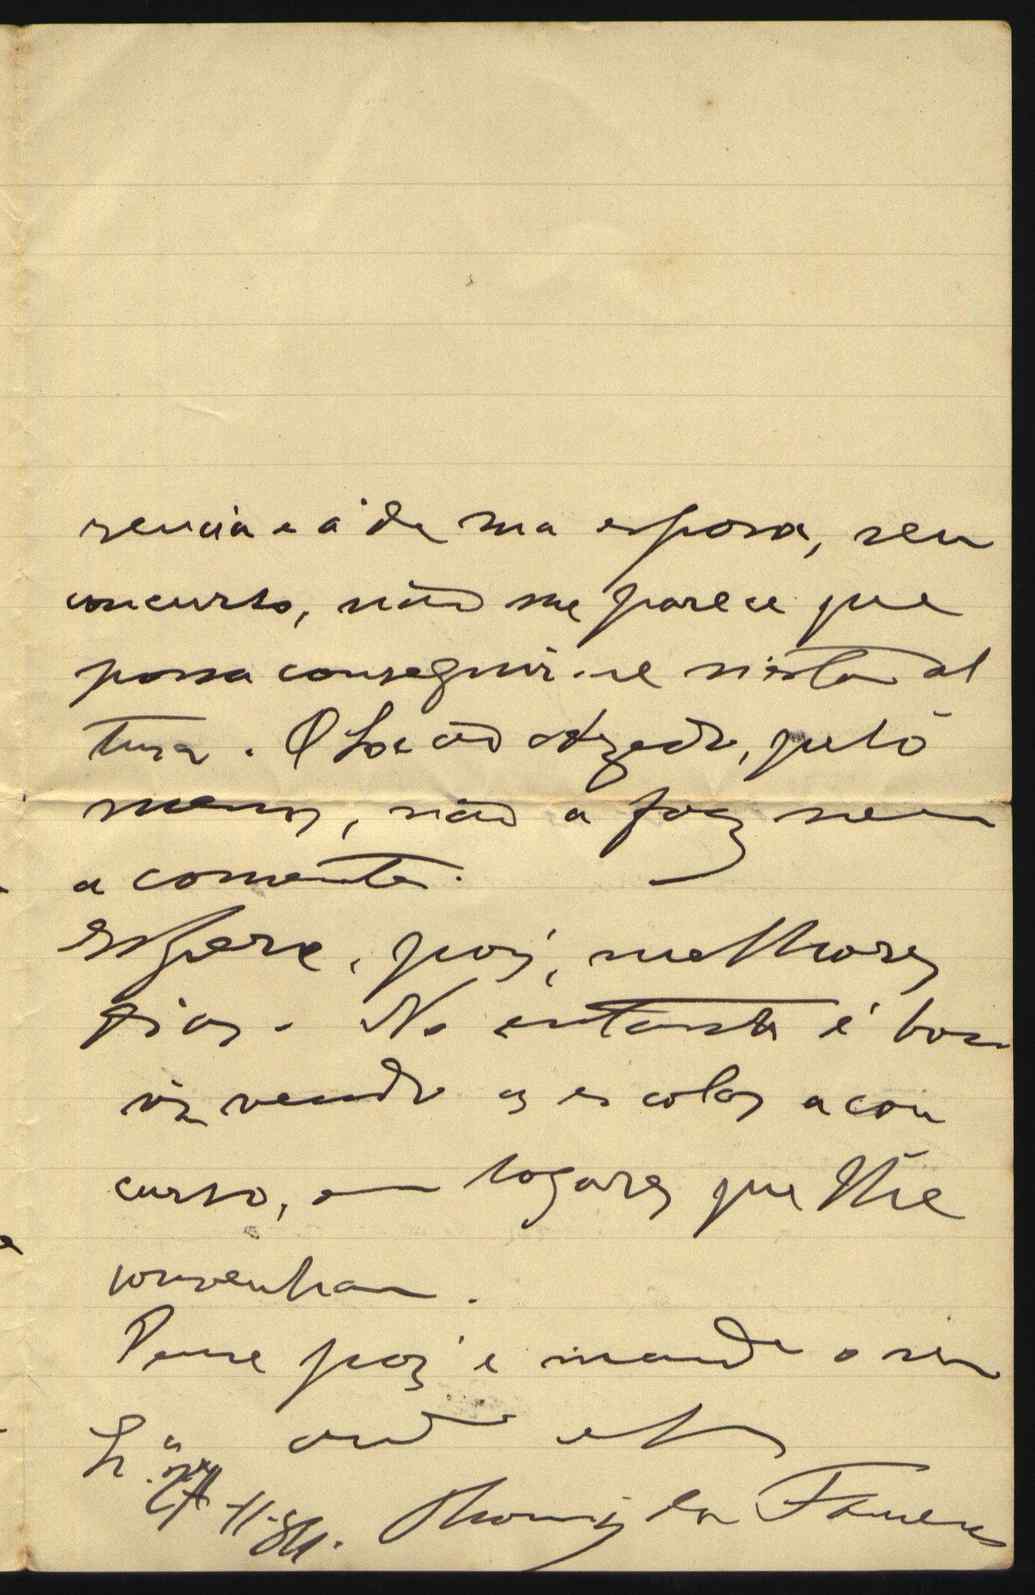 rencia e á de sua esposa, sem
concurso, não me parece que
possa conseguir-se n'esta al
tura. O Locão Azedo, pelo
menos, não a faz nem
a comenta.
Espere, pois, melhores
dias. No entanto é bom
ir vendo as escolas a con
curso, em logares que lhe
convenham.
Pense pois e mande o seu
am.º
Lx.ª
27-11-84. Thomaz da Fonseca